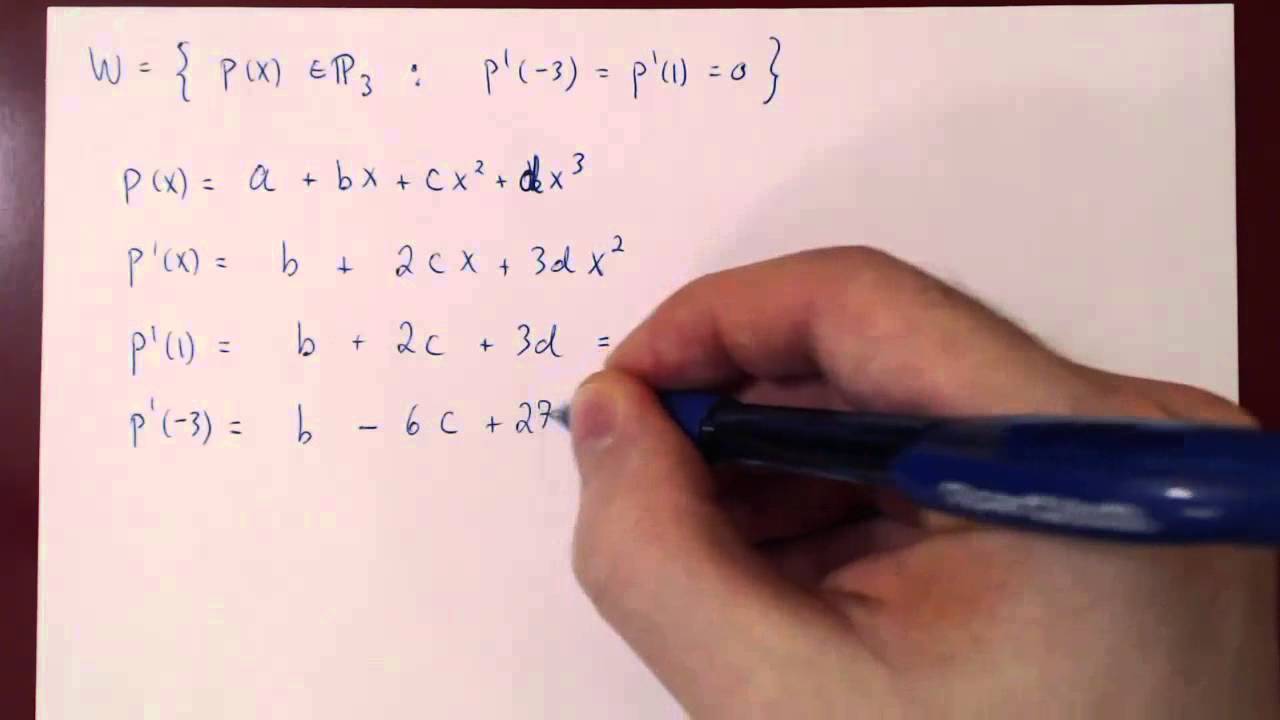 W = { p(x) ∈ ℙ₃ : p'(-3) = p'(1) = 0 }
p(x) = a + bx + cx² + dx³
p'(x) = b + 2cx + 3dx²
p'(1) = b + 2c + 3d =
p'(-3) = b - 6c + 27